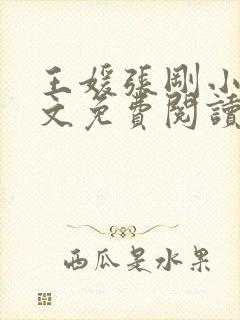 王媛張剛小
文免費閱讀
西瓜是水果